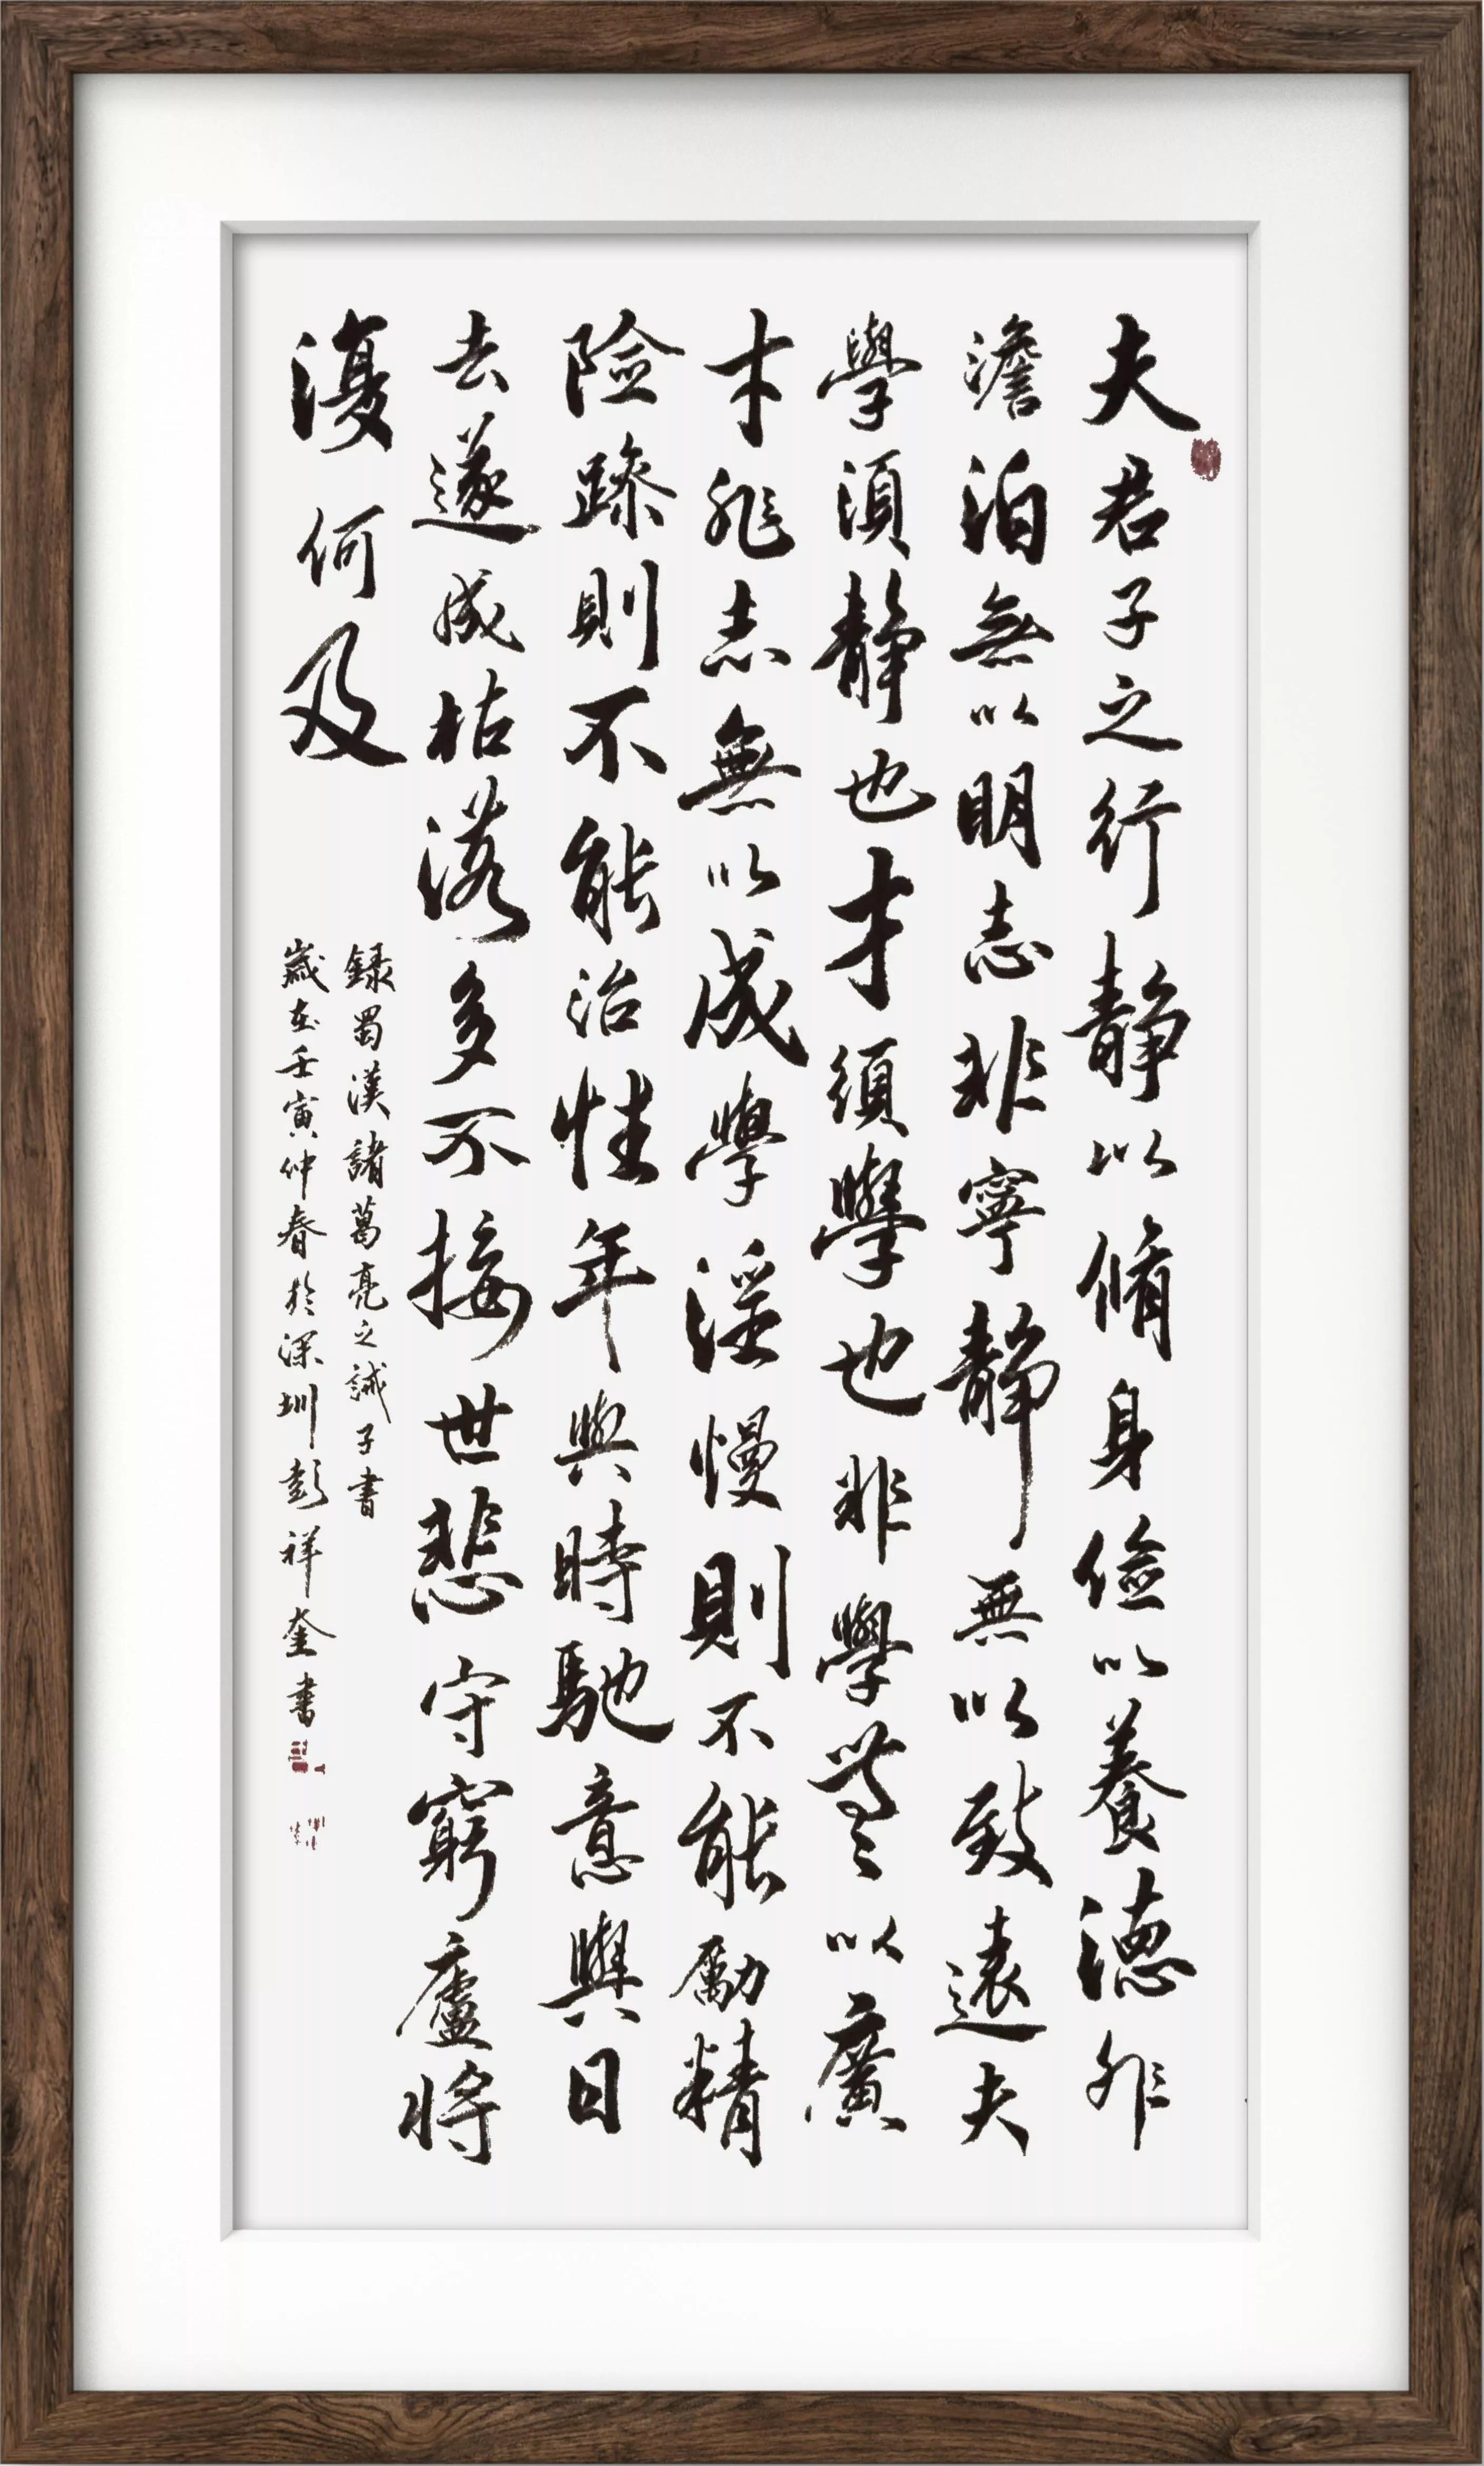 夫君子之行静以脩身儉以養德非
澹泊無以明志非寧静無以致遠夫
學須静也才須學也非學無以廣
才非志無以成學淫慢則不能勵精
險躁則不能治性年與時馳意與日
去遂成枯落多不接世悲守窮廬將
復何及
録蜀漢諸葛亮之誡子書
歲在壬寅仲春於深圳彭祥奎書